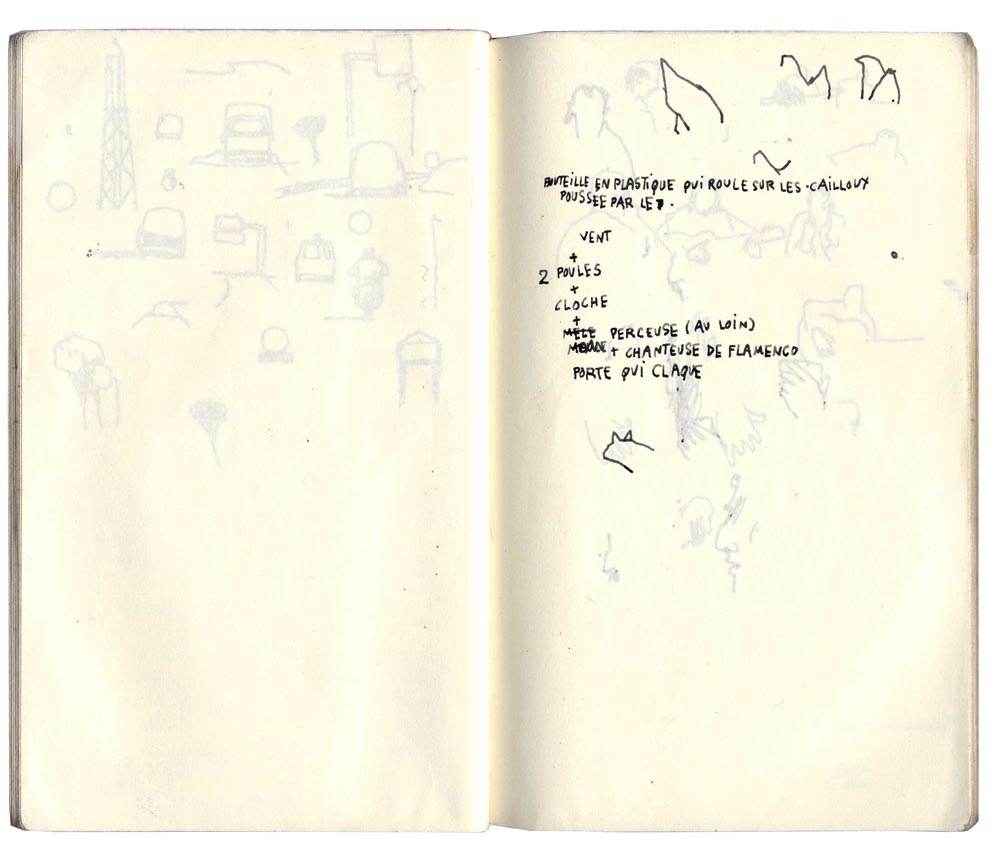 BOUTEILLE EN PLASTIQUE QUI ROULE SUR LES CAILLOUX
POUSSEE PAR LE
VENT
+
2 POULES
+
CLOCHE
+
PERCEUSE (AU LOIN)
+ CHANTEUSE DE FLAMENCO
PORTE QUI CLAQUE